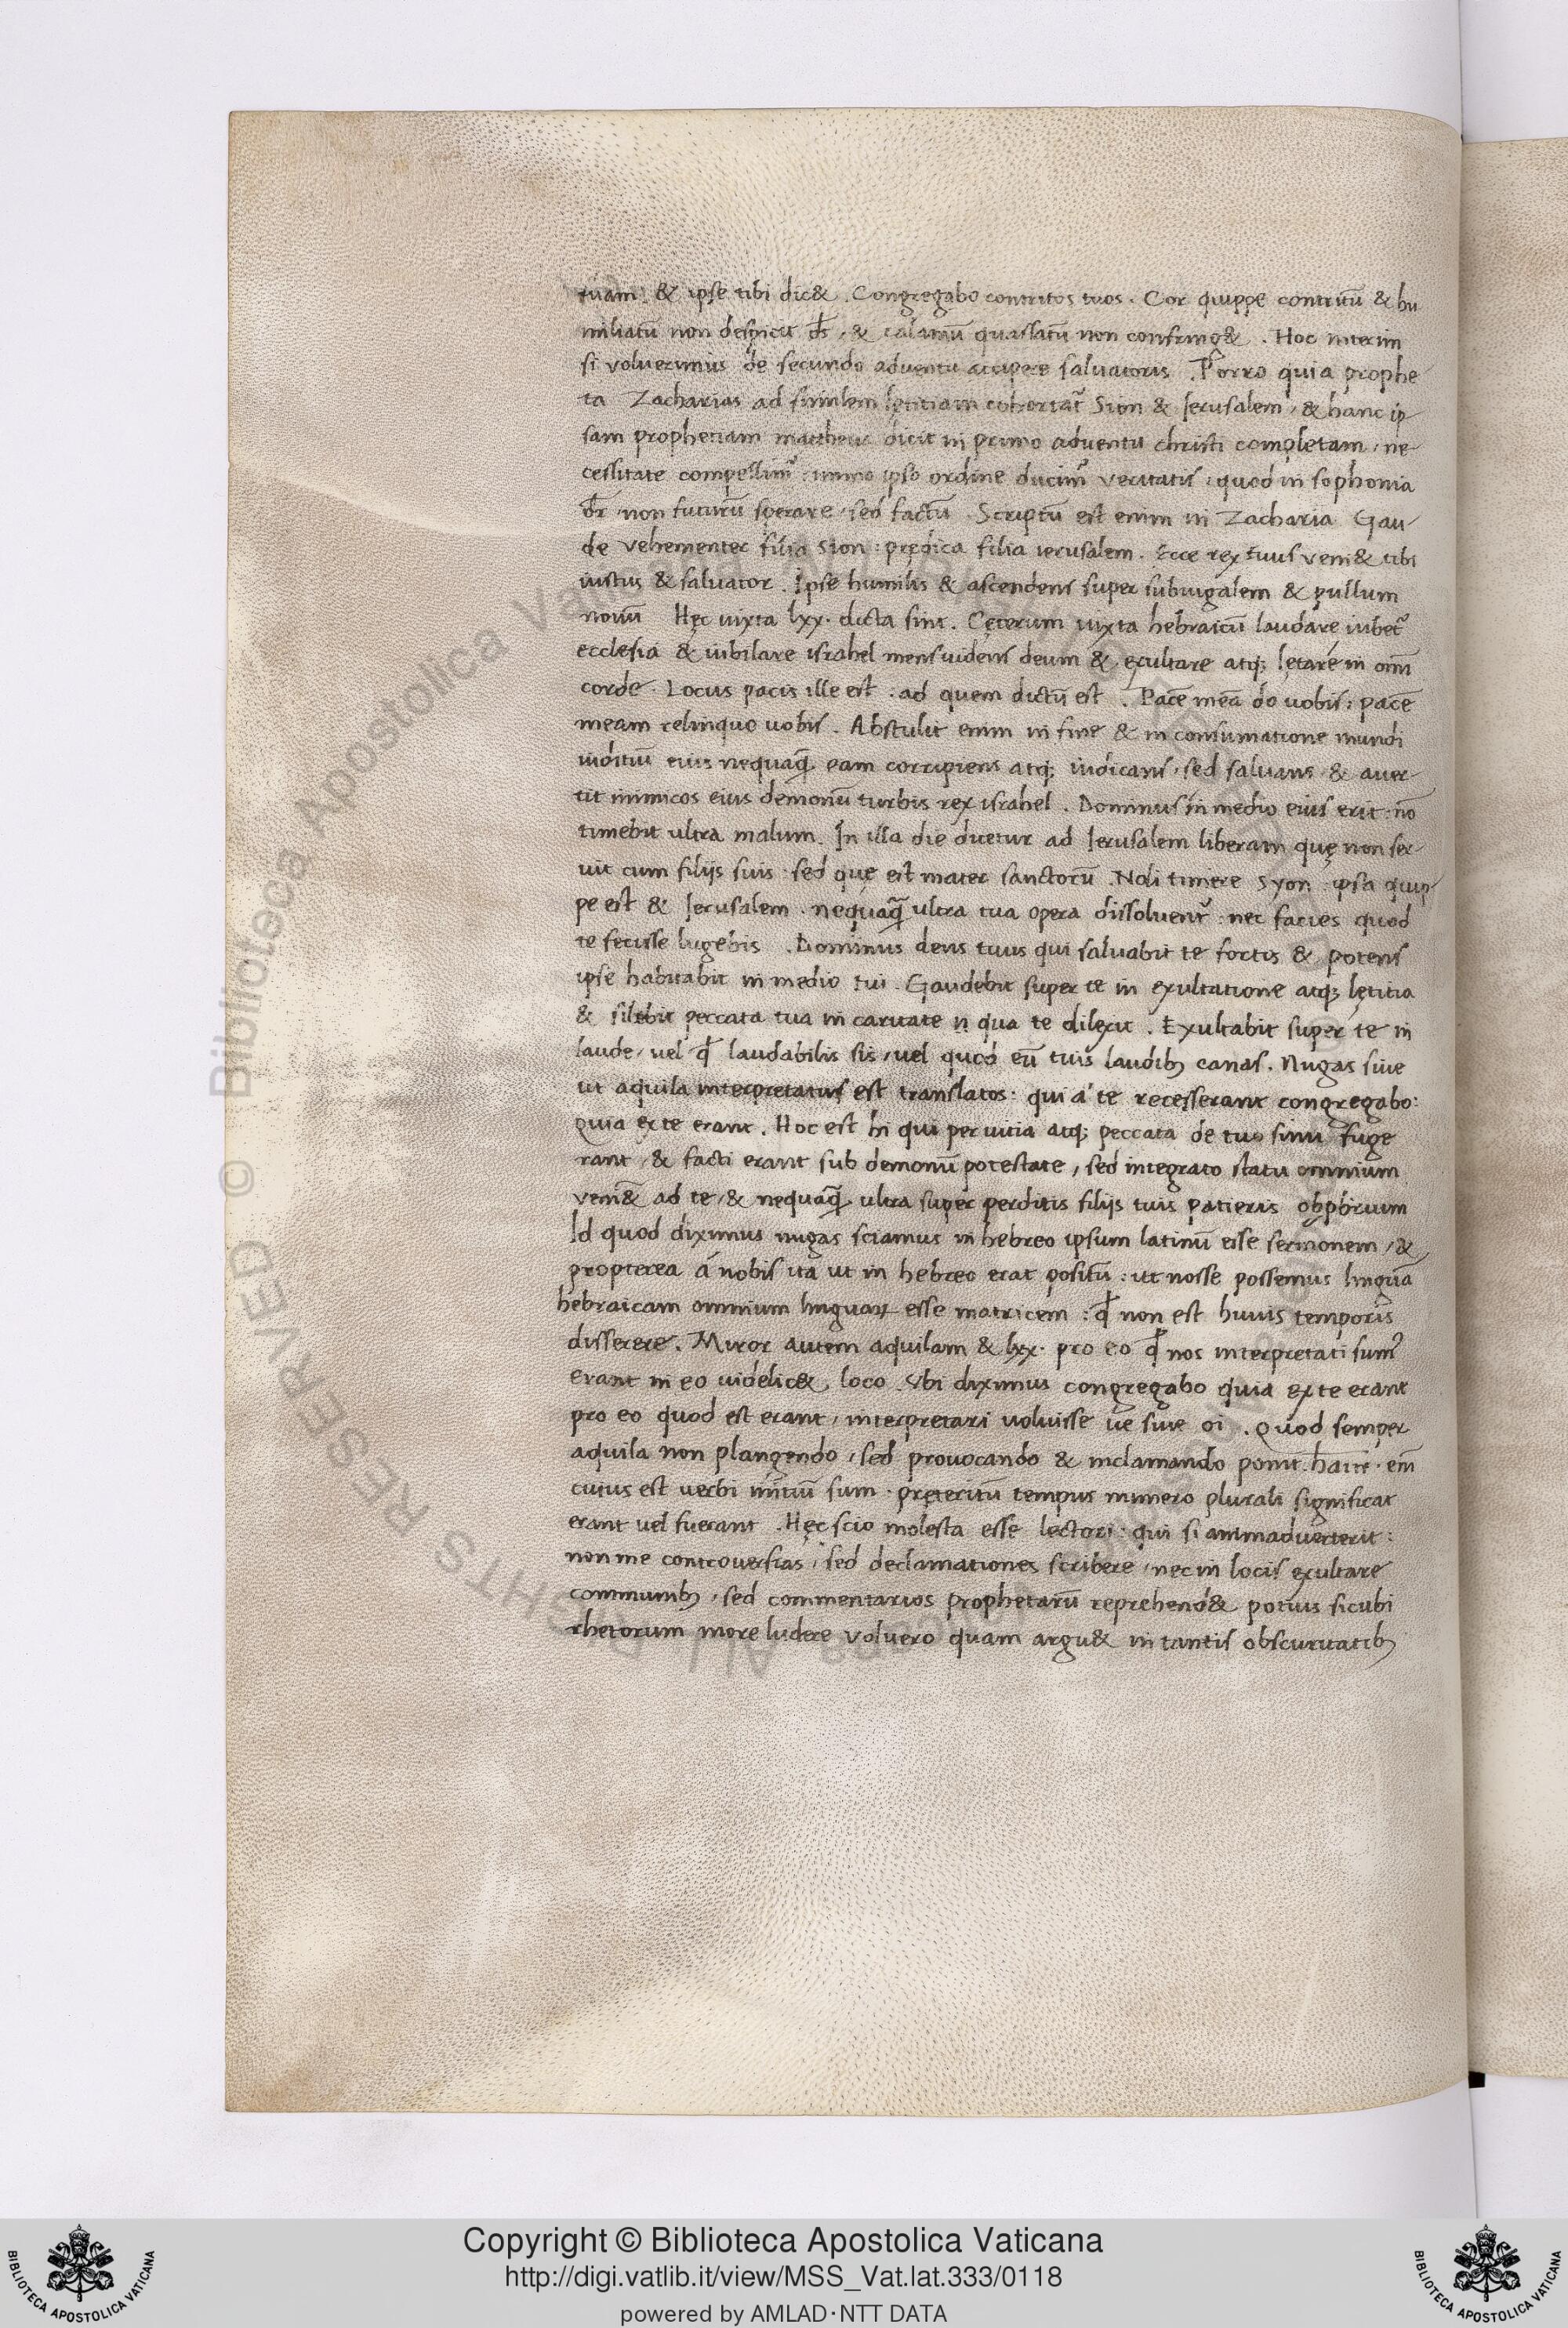 tuam . & ipse tibi dic& . Congregabo contritos tuos . Cor quippe contritũ & hu
miliatũ non despicit d̅s , & calamũ quassatũ non confring& . Hoc interim
si voluerimus de secundo adventu accipere salvatoris . Porro quia prophe-
ta Zacharias ad similem lętitiam cohortat᷑ Sion & Ierusalem , & hanc ip-
sam prophetiam mattheus dicit in primo adventu christi completam , ne-
cessitate compellim᷒ : immo ipso ordine ducim᷒ veritatis : quod in sophonia
d̅r , non futurũ sperare , sed factũ . Scriptũ est enim in Zacharia Gau-
de vehementer filia sion : prędica filia ierusalem . Ecce rex tuus veni& tibi
iustus & salvator . Ipse humilis & ascendens super subiugalem & pullum
novũ Hęc iuxta lxx . dicta sint . Cęterum iuxta hebraicũ laudare iubet᷑
ecclesia & iubilare israhel mens uidens deum & exultare atq; lętare in om̅i
corde . Locus pacis ille est : ad quem dictũ est . Pacẽ meã do uobis : pacẽ
meam relinquo uobis . Abstulit enim in fine & in consumatione mundi
iuditiũ eius nequaq̃ eam corripiens atq; iudicans , sed salvans , & aver-
tit inimicos eius demonũ turbis rex israhel . Dominus in medio eius erit : nõ
timebit ultra malum . In illa die dicetur ad Ierusalem liberam quę non ser-
vit cum filijs suis : sed quę est mater sanctorũ . Noli timere syon : ipsa quip-
pe est & Ierusalem . nequaq̃ ultra tua opera dissolvent᷑ : nec facies quod
te fecisse lugebis . Dominus deus tuus qui salvabit te fortis & potens
ipse habitabit in medio tui . Gaudebit super te in exultatione atq; lętitia
& silebit peccata tua in caritate in qua te dilexit . Exultabit super te in
laude , vel q̃ laudabilis sis , vel quod eũ tuis laudib; canas . Nugas sive
ut aquila interpretatus est translatos : qui á te recesserant congregabo :
quia ex te erant . Hoc est hi qui per vitia atq; peccata de tuo sinu fuge
rant , & facti erant sub demonũ potestate , sed integrato statu omnium
veni& ad te , & nequaq̃ ultra super perditis filijs tuis patieris obp̱brium
Id quod diximus nugas sciamus in hebreo ipsum latinũ esse sermonem , &
propterea á nobis ita ut in hebreo erat positũ : ut nosse possemus linguã
hebraicam omnium linguaꝝ esse matricem : q̃ non est huius temporis
disserere . Miror autem aquilam & lxx . pro eo q̃ nos interpretati sum᷒
erant in eo uidelic& loco . Vbi diximus congregabo quia ex te erant
pro eo quod est erant , interpretari voluisse ue sive oi . Quod semper
aquila non plangendo , sed provocando & inclamando ponit . haiu . em̅
cuius est verbi initiũ sum . pręteritũ tempus numero plurali significat
erant vel fuerant . Hęc scio molesta esse lectori : qui si animadverterit :
non me controversias , sed declamationes scribere , nec in locis exultare
communib; , sed commentarios prophetarũ reprehend& potius sicubi
rhetorum more ludere voluero quam argu& in tantis obscuritatib;
© Biblioteca Apostolica Vaticana
ALL RIGHTS RESERVED
BIBLIOTECA APOSTOLICA VATICANA
Copyright © Biblioteca Apostolica Vaticana
http://digi.vatlib.it/view/MSS_Vat.lat.333/0118
powered by AMLAD·NTT DATA
BIBLIOTECA APOSTOLICA VATICANA